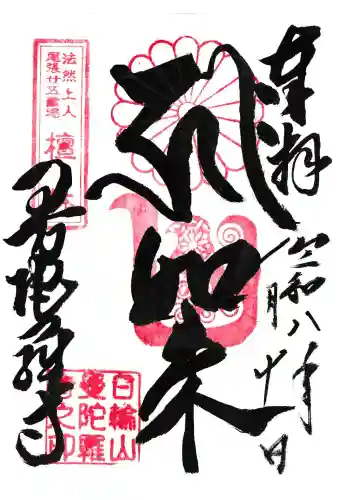 奉拝
令和八年
月十日
弥如来
曼陀羅寺
法然上人
尾張廿五霊場
檀林
日輪山
曼陀羅
寺之印